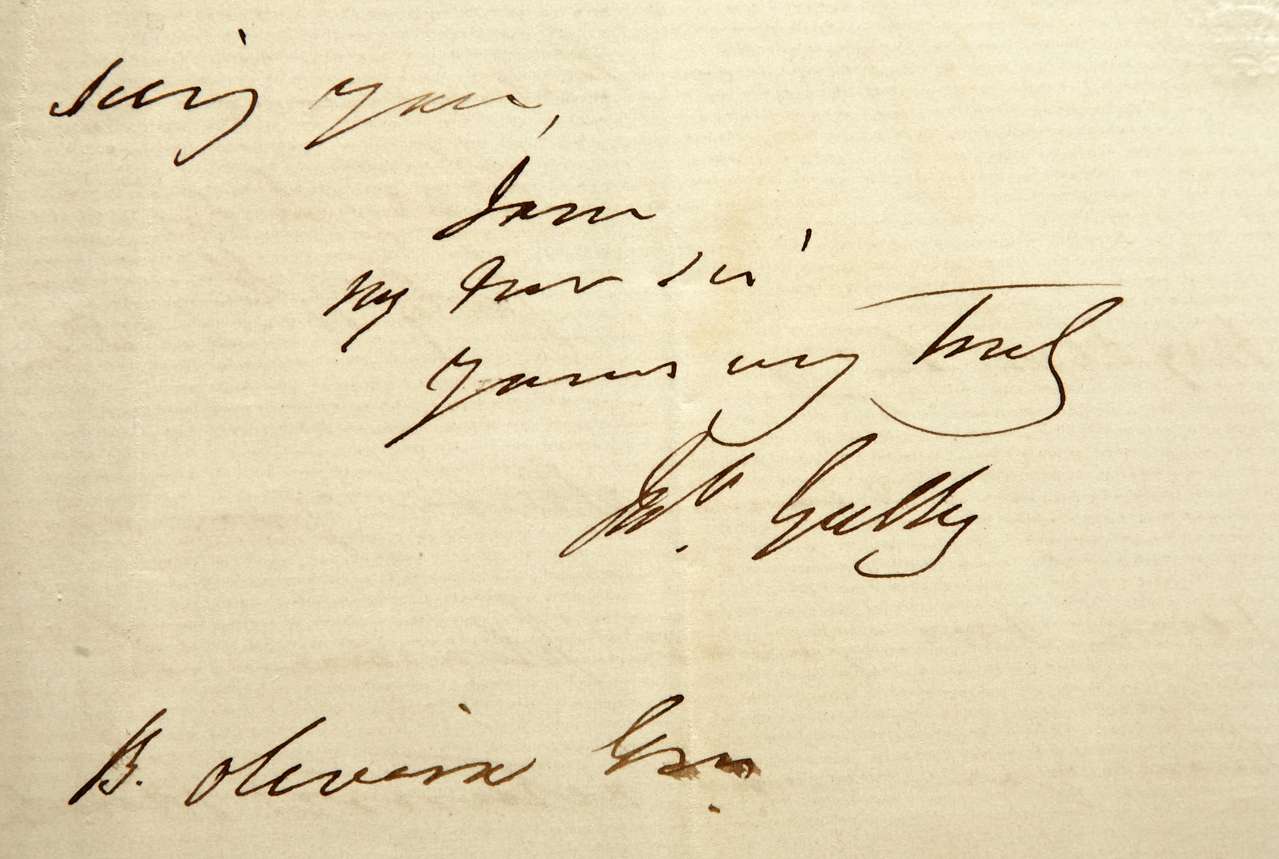 seeing you,
I am
My Dear Sir
Yours very Truly
B. Oliveira Esqr